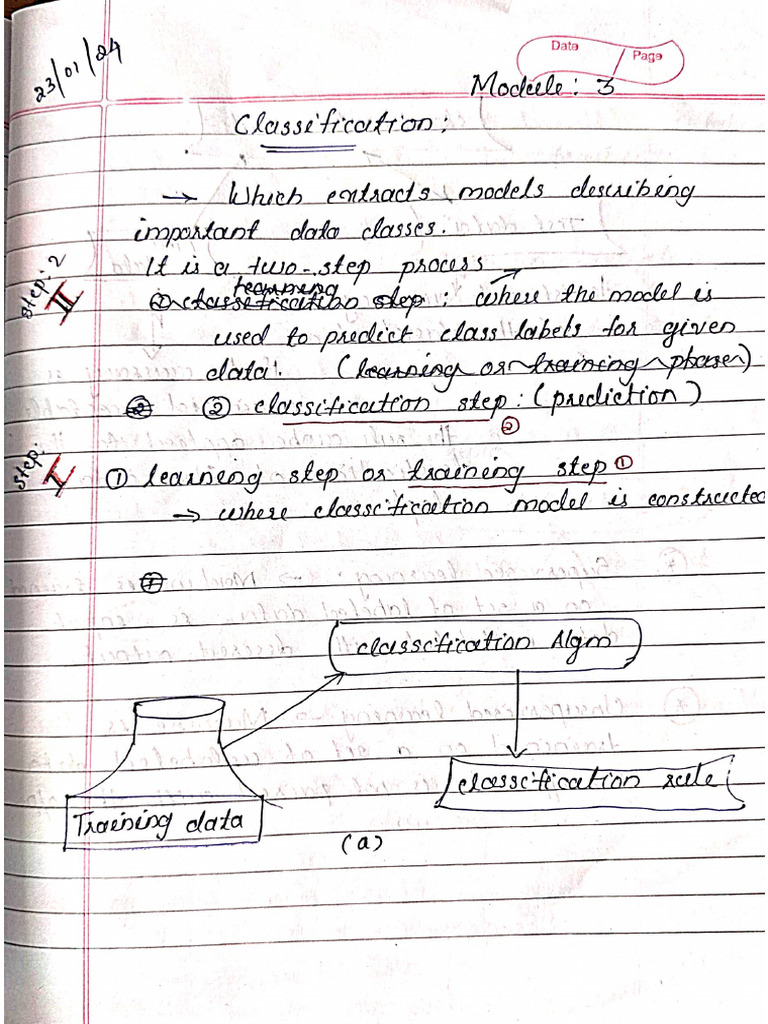 23/01/24
Date
Page
Module: 3
Classification:
→ Which extracts models describing
important data classes.
It is a two-step process
step: 2
II
learning
classification step: where the model is
used to predict class labels for given
data. (learning or training phase)
② classification step: (prediction)
②
step:
I
① learning step or training step ①
→ where classification model is constructed
classification Algm
classification rule
Training data
(a)